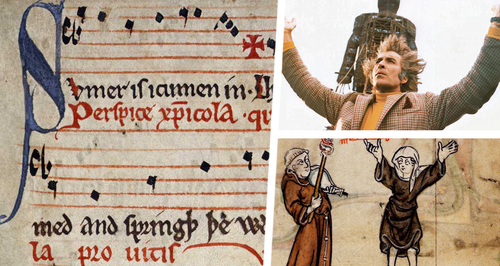 Svmer is icumen in. Lh
Perspice xp̄icola. q
med and springþ þe w
la pro uitis